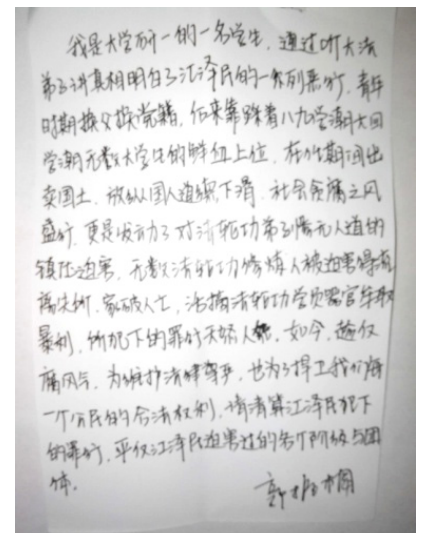 我是大学研一的一名学生，通过听大法
弟子讲真相明白了江泽民的一系列恶行，青年
时期换父换党籍，后来靠踩着八九学潮大
学潮无数大学生的鲜血上位，在位期间出
卖国土，放纵国人道德下滑，社会贪腐之风
盛行，更是发动了对法轮功弟子惨无人道的
镇压迫害，无数法轮功修炼人被迫害得流
离失所，家破人亡，活摘法轮功学员器官牟取
暴利，所犯下的罪行天怒人怨，如今，
腐风气，为维护法律尊严，也为了捍卫我们每
一个公民的合法权利，请清算江泽民犯下
的罪行，平反江泽民迫害过的各个阶级与团
体。
郭